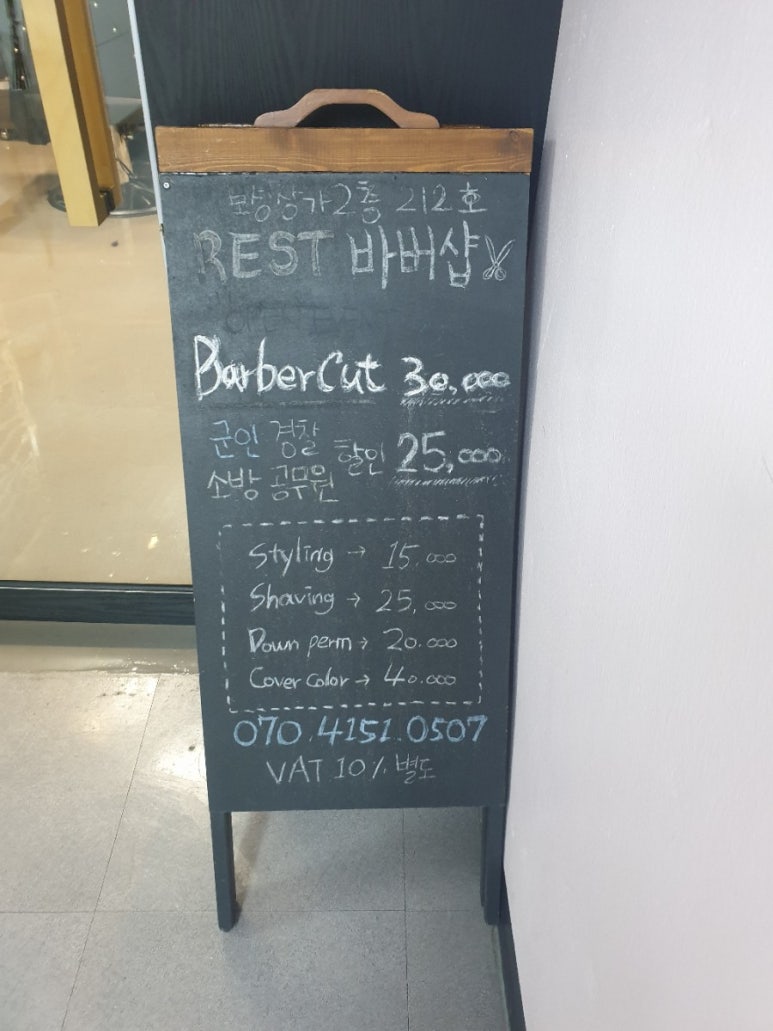 상가 2층 212호
REST 바버샵
OPEN EVENT
BarberCut 30,000
군인 경찰
소방 공무원 할인 25,000
Styling → 15.000
Shaving → 25,000
Down perm → 20.000
Cover color → 40.000
070.4151.0507
VAT 10% 별도